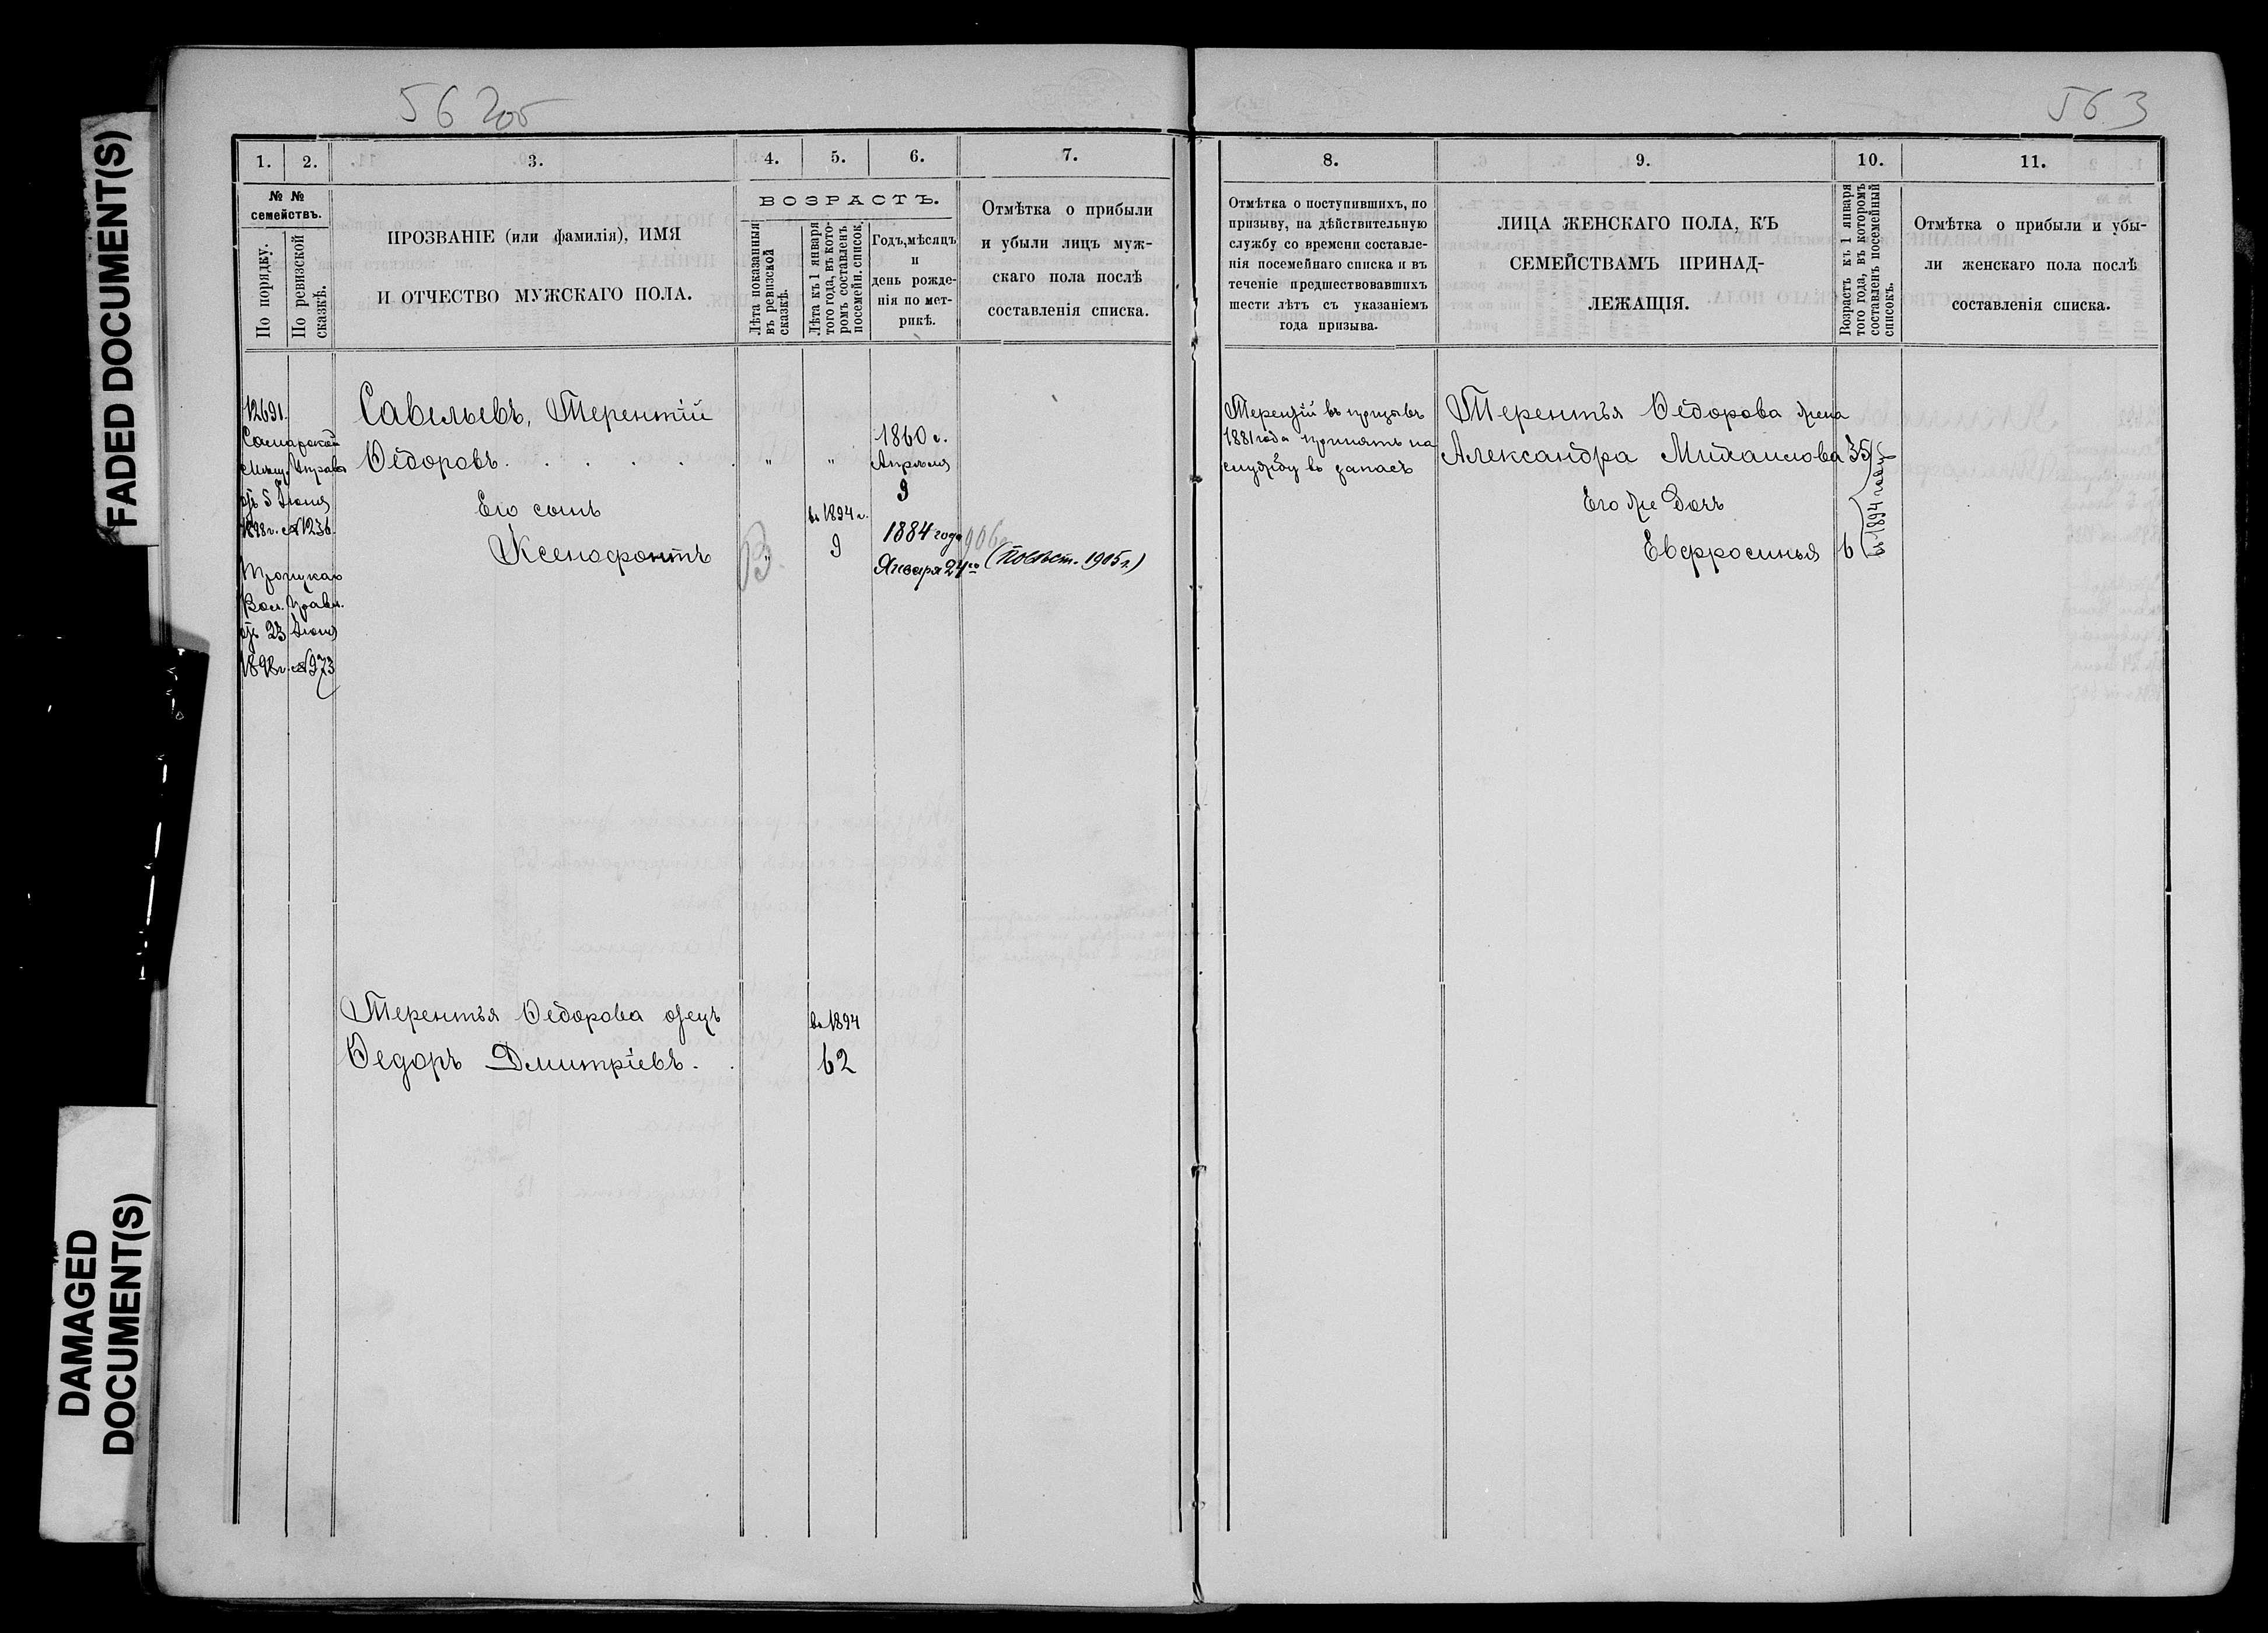 FADED DOCUMENT(S)
DAMAGED
DOCUMENT(S)
562об
1. 2. 3. 4. 5. 6. 7.
№ №
семействъ.
По порядку.
По ревизской
сказкѣ.
ПРОЗВАНІЕ (или фамилія), ИМЯ
И ОТЧЕСТВО МУЖСКАГО ПОЛА.
ВОЗРАСТЪ.
Лѣта показанныя
въ ревизской
сказкѣ.
Лѣта къ 1 января
того года, въ кото-
ромъ составленъ
посемейн. списокъ.
Годъ, мѣсяцъ
и
день рожде-
нія по мет-
рикѣ.
Отмѣтка о прибыли
и убыли лицъ муж-
скаго пола послѣ
составленія списка.
12691.
Самарской
Мѣщ. Управы
отъ 5 Іюня
1898г. №1236.
Троицкаго
Вол. Правл.
отъ 23 Іюня
1898г. №973
Савельевъ, Терентій
Ѳедоровъ. . . . . .
" "
1860 г.
Апрѣля
9
Его сынъ
Ксенофонтъ
В.
"
въ 1894 г.
9
1884 года
Января 24го
906г
(Посѣст. 1905 г.)
Терентья Ѳедорова отецъ
Ѳедоръ Дмитріевъ. .
въ 1894
62
563
8. 9. 10. 11.
Отмѣтка о поступившихъ, по
призыву, на дѣйствительную
службу со времени составле-
нія посемейнаго списка и въ
теченіе предшествовавшихъ
шести лѣтъ съ указаніемъ
года призыва.
ЛИЦА ЖЕНСКАГО ПОЛА, КЪ
СЕМЕЙСТВАМЪ ПРИНАД-
ЛЕЖАЩІЯ.
Возрастъ къ 1 января
того года, въ которомъ
составленъ посемейный
списокъ.
Отмѣтка о прибыли и убы-
ли женскаго пола послѣ
составленія списка.
Терентій въ призывъ
1881 года принятъ на
службу въ запасъ
Терентья Ѳедорова жена
Александра Михаилова 35
Его же Дочь
Евфросинья 6
въ 1894 году